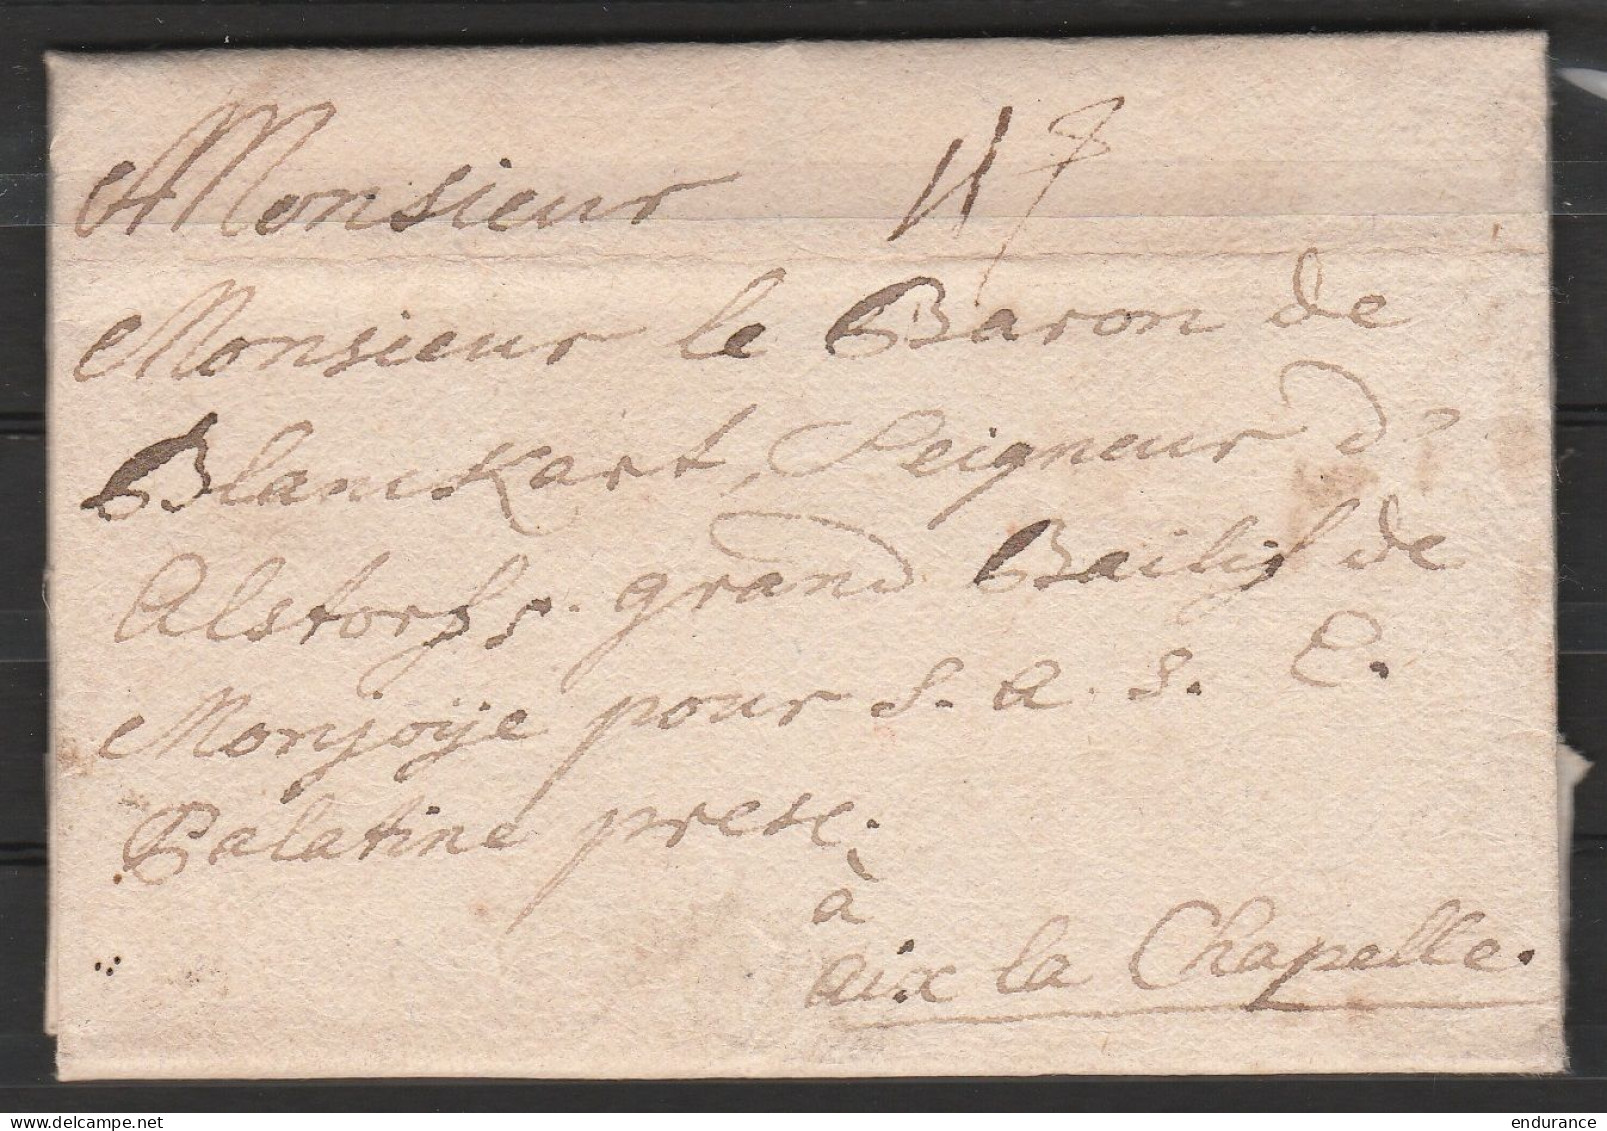 Monsieur
Monsieur le Baron de
Blanckart, Seigneur d'
Alstorff, grand Bailif de
Monjoije pour S. A. S. E.
Palatine prese.
à
aix la Chapelle.
endurance